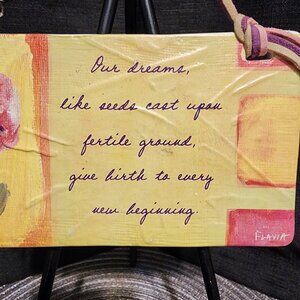 Our dreams,
like seeds cast upon
fertile ground,
give birth to every
new beginning.
FLAVIA